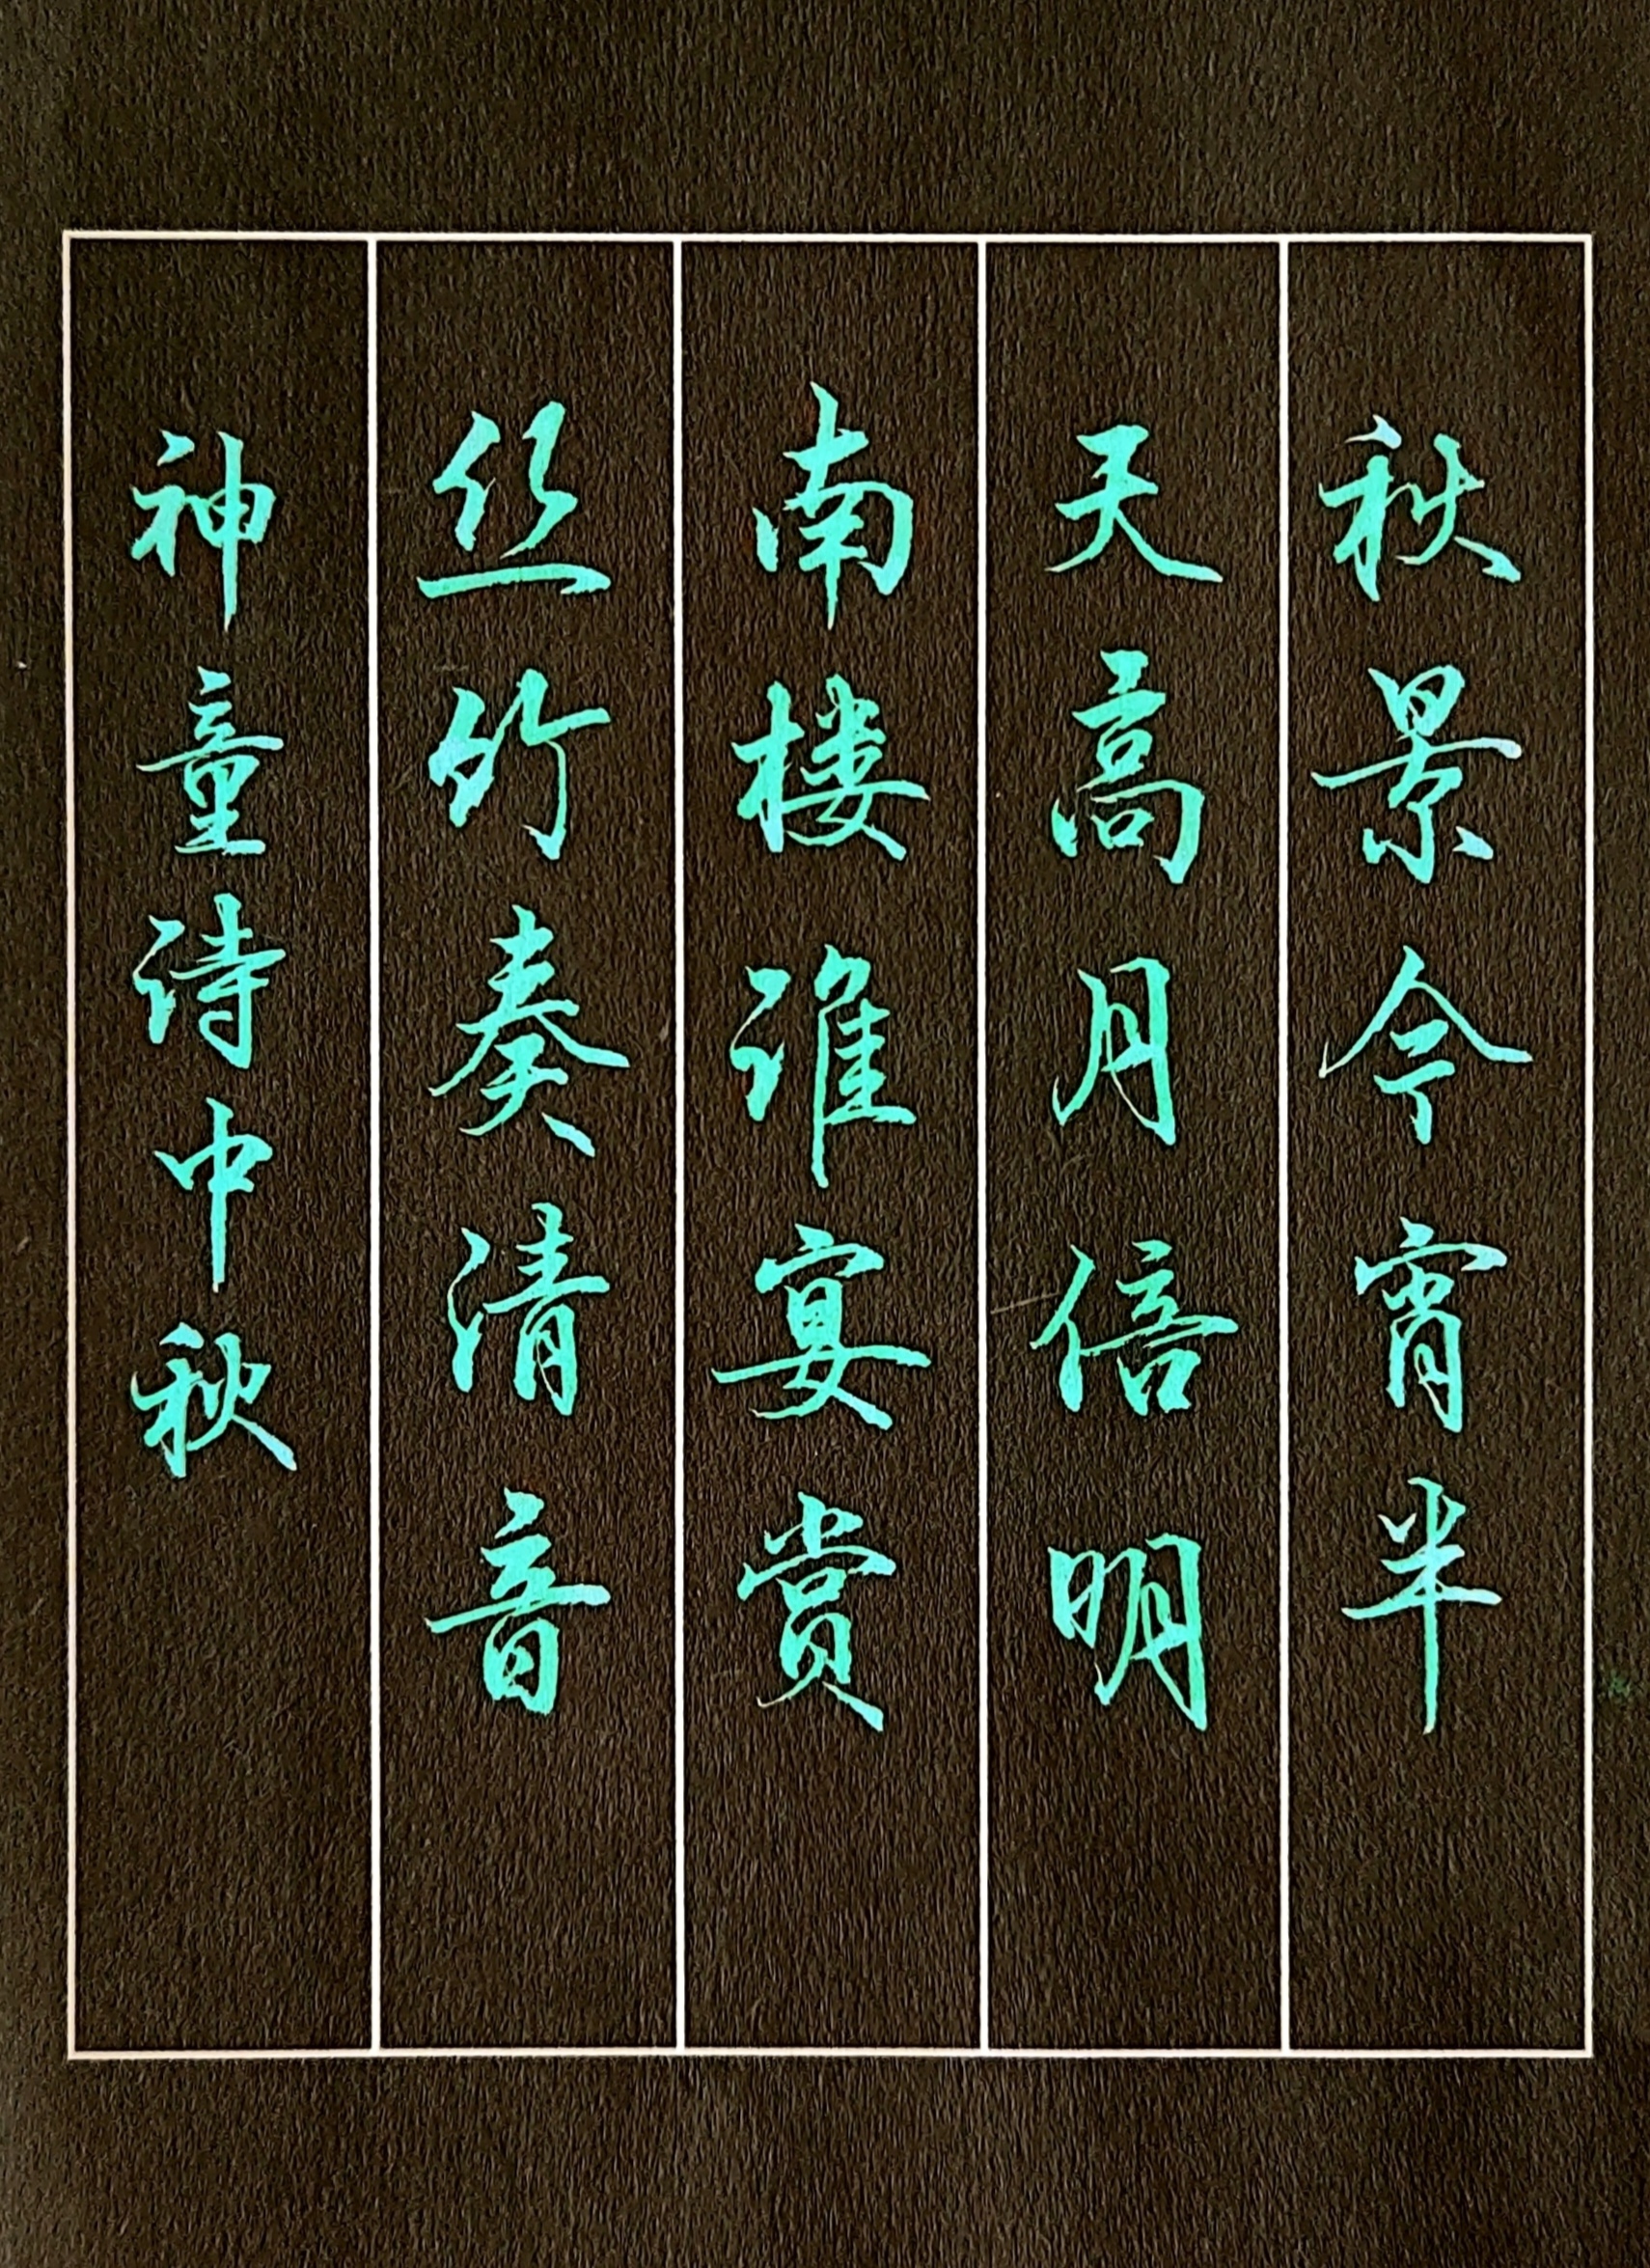 秋景今宵半
天高月倍明
南楼谁宴赏
丝竹奏清音
神童诗中秋